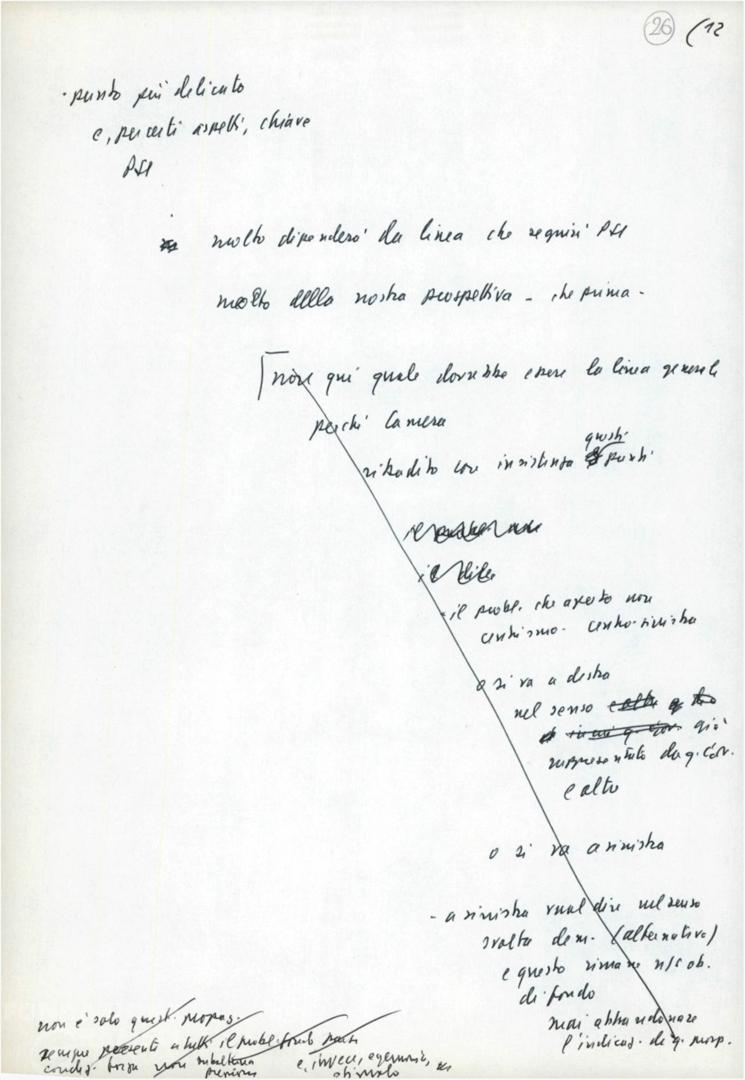 26 (12
· punto più delicato
e, per certi aspetti, chiave
PSI
molto dipenderà da linea che seguirà PSI
molto della nostra prospettiva - che prima -
qui quale dovrebbe essere la linea generale
perché Camera
ribadito con insistenza questi punti
il
il
- il probl. che aperto non
centrismo - centro-sinistra
o si va a destra
nel senso già
rappresentato da q. Gov.
e altro
o si va a sinistra
- a sinistra vuol dire nel senso
svolta dem. (alternativa)
e questo rimane n/s ob.
di fondo
mai abbandonare
l'indicaz. di q. prosp.
non è solo quest. propos.
sempre presenti a tutti il probl.
forza non subalterna
e, invece, egemonia,
stimolo